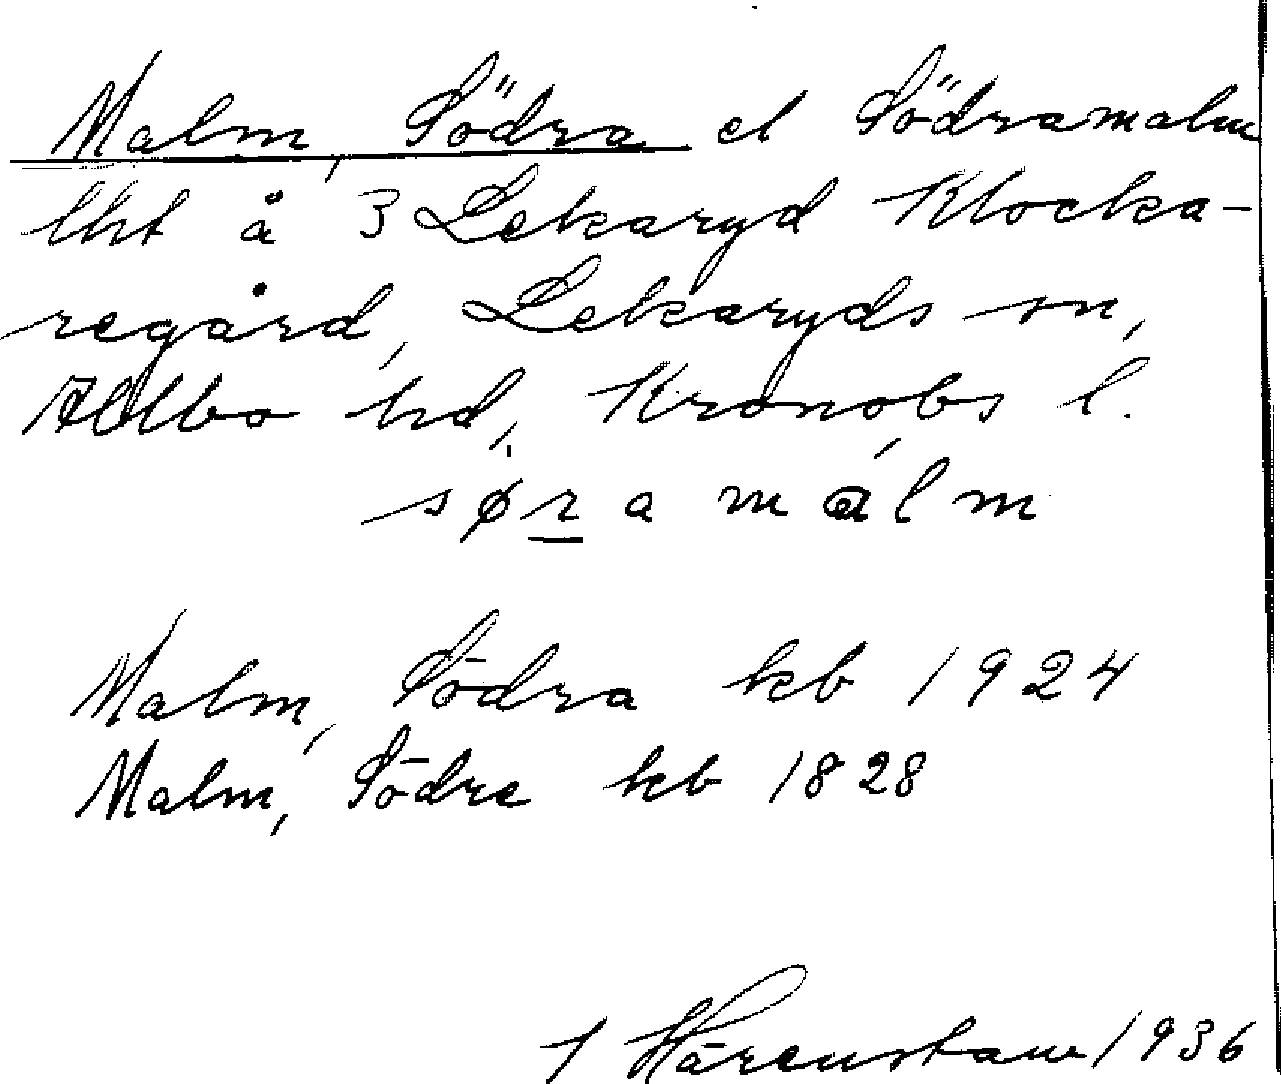 Malm, Södra el Södramalm
lht å 3 Lekaryd Klocka-
regård, Lekaryds sn,
Allbo hd, Kronobs l.
sø̀ramálm
Malm, Södra kb 1924
Malm, Södre kb 1828
J Härenstam 1936